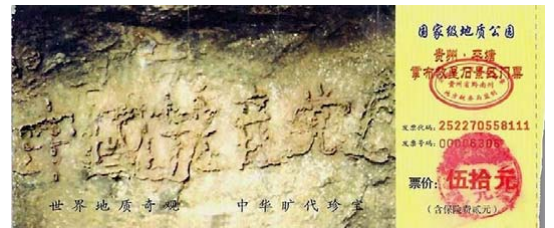 中国共产党
世界地质奇观 中华旷代珍宝
国家级地质公园
贵州·平塘
掌布风景名胜区门票
发票代码: 252270558111
发票号码: 00006306
票价: 伍拾元
(含保险费贰元)